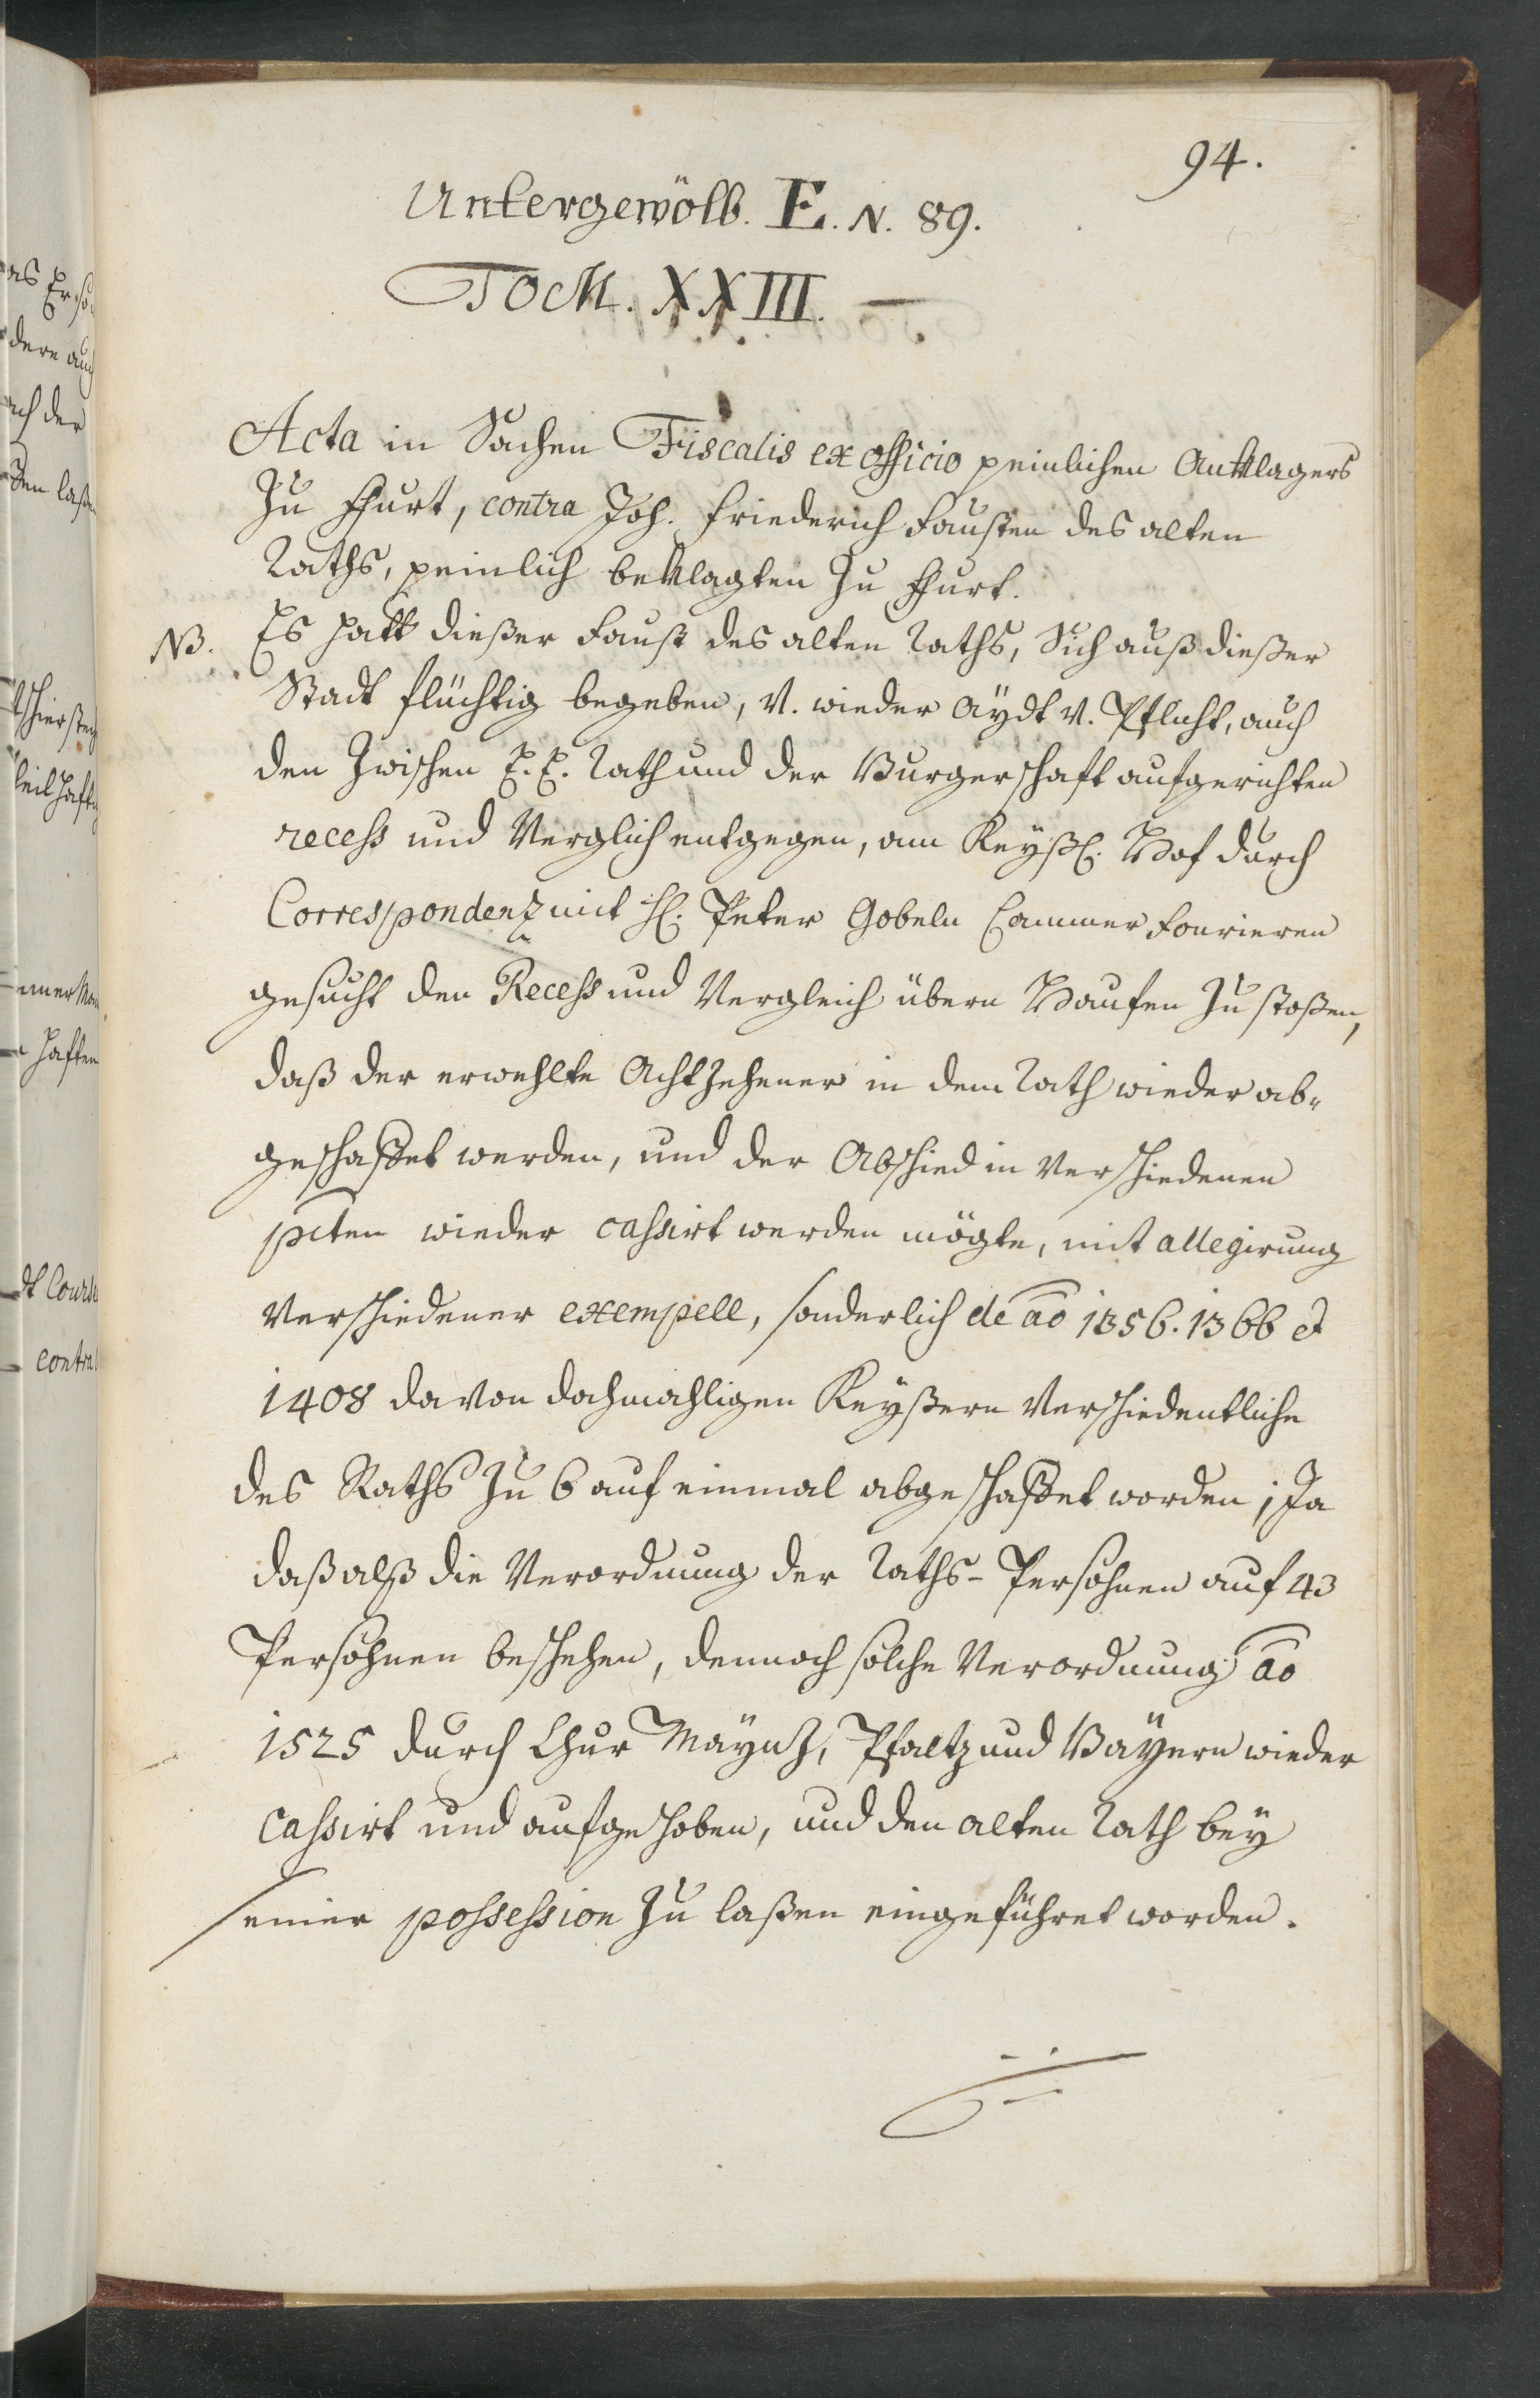 94.
Untergewölb. E. N. 89.
TOM. XXIII.
Acta in Sachen Fiscalis ex officio peinlichen Anklagers
Zu Ffurt, contra Joh. Friederich Fausten des alten
Raths, peinlich beklagten Zu Ffurt.
NB. Es hatt dießer Faust des alten Raths, Sich auß dießer
Stadt flüchtig begeben, v. wieder Aÿdt v. Pflicht, auch
den Zwischen E. E. Rath und der Burgerschaft aufgerichten
recess und Verglich entgegen, am Keyßl. Hof durch
Correspondenz mit H. Peter Gobeln Cammer Fourieren
gesucht den Recess und Vergleich übern Haufen Zu stoßen,
daß der erwehlte Achtzehener in dem Rath wieder ab-
geschaffet werden, und der Abschied in Verschiedenen
pcten wieder cassirt werden mögte, mit allegirung
Verschiedener exempell, sonderlich de ao 1356. 1366 et
1408 da von dochmahligen Keyßern Verschiedentliche
des Raths Zu 6 auf einmal abgeschaffet worden; Ja
daß alß die Verordnung der Raths-Persohnen auf 43
Persohnen beschehen, dennoch solche Verordnung ao
1525 durch Chur Maÿnz, Pfaltz und Baÿern wieder
cassirt und aufgehoben, und den alten Rath beÿ
seiner possession Zu laßen eingeführet worden.
as Er so
dere auch
ch der
den laßen
theilhaft
haften
contra